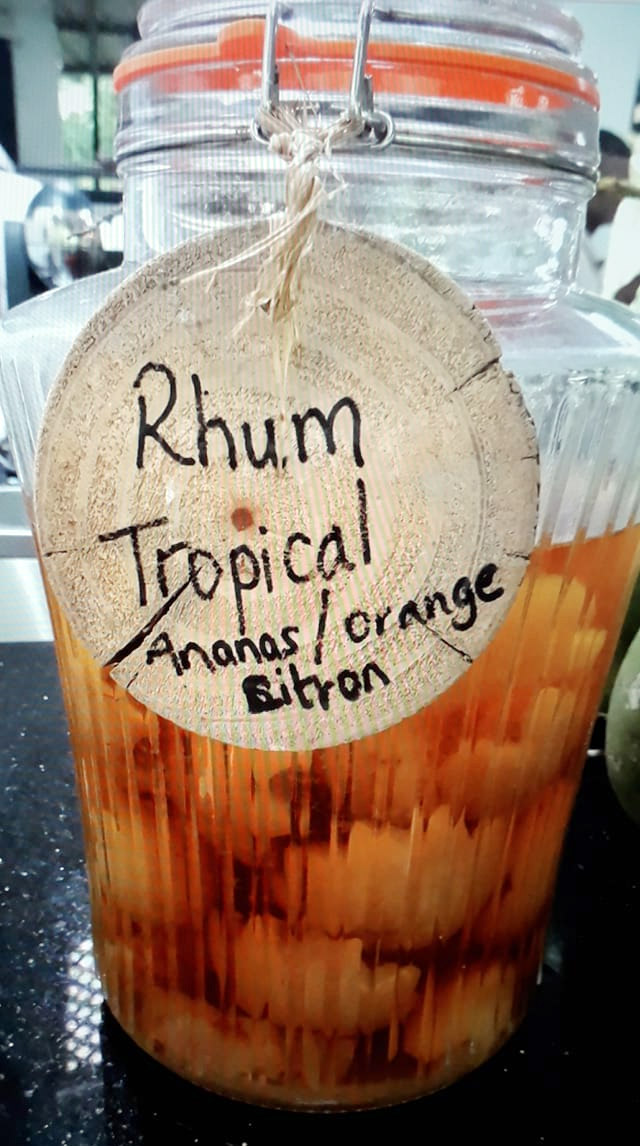 Rhum
Tropical
Ananas / orange
Citron